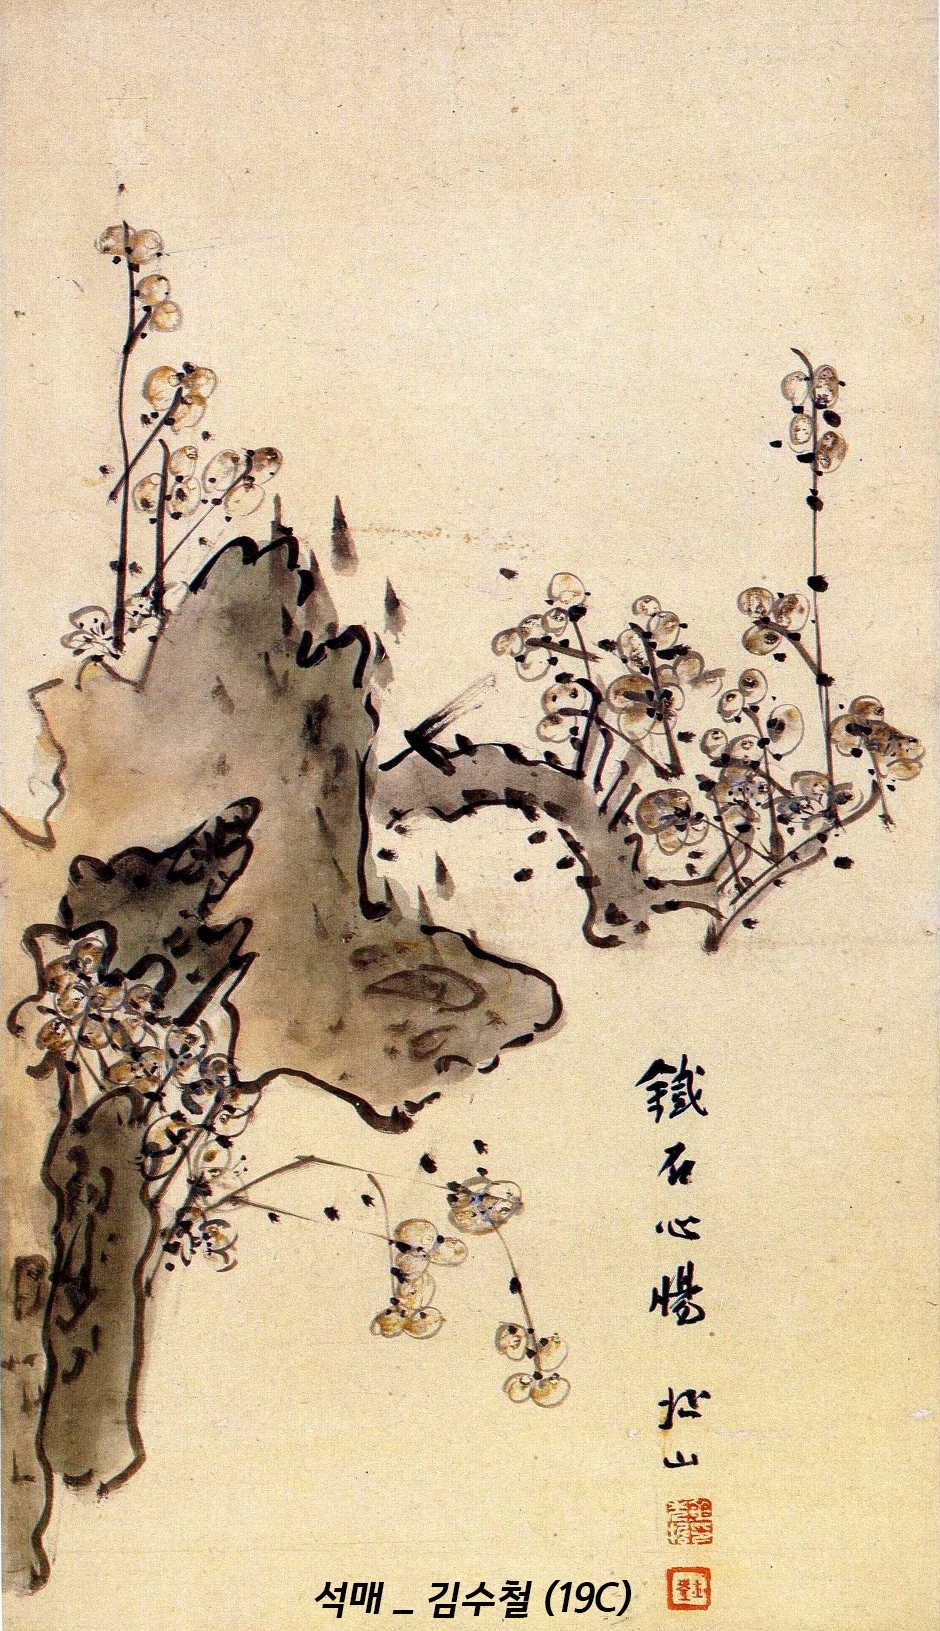 鐵石心腸 北山
석매 _ 김수철 (19C)